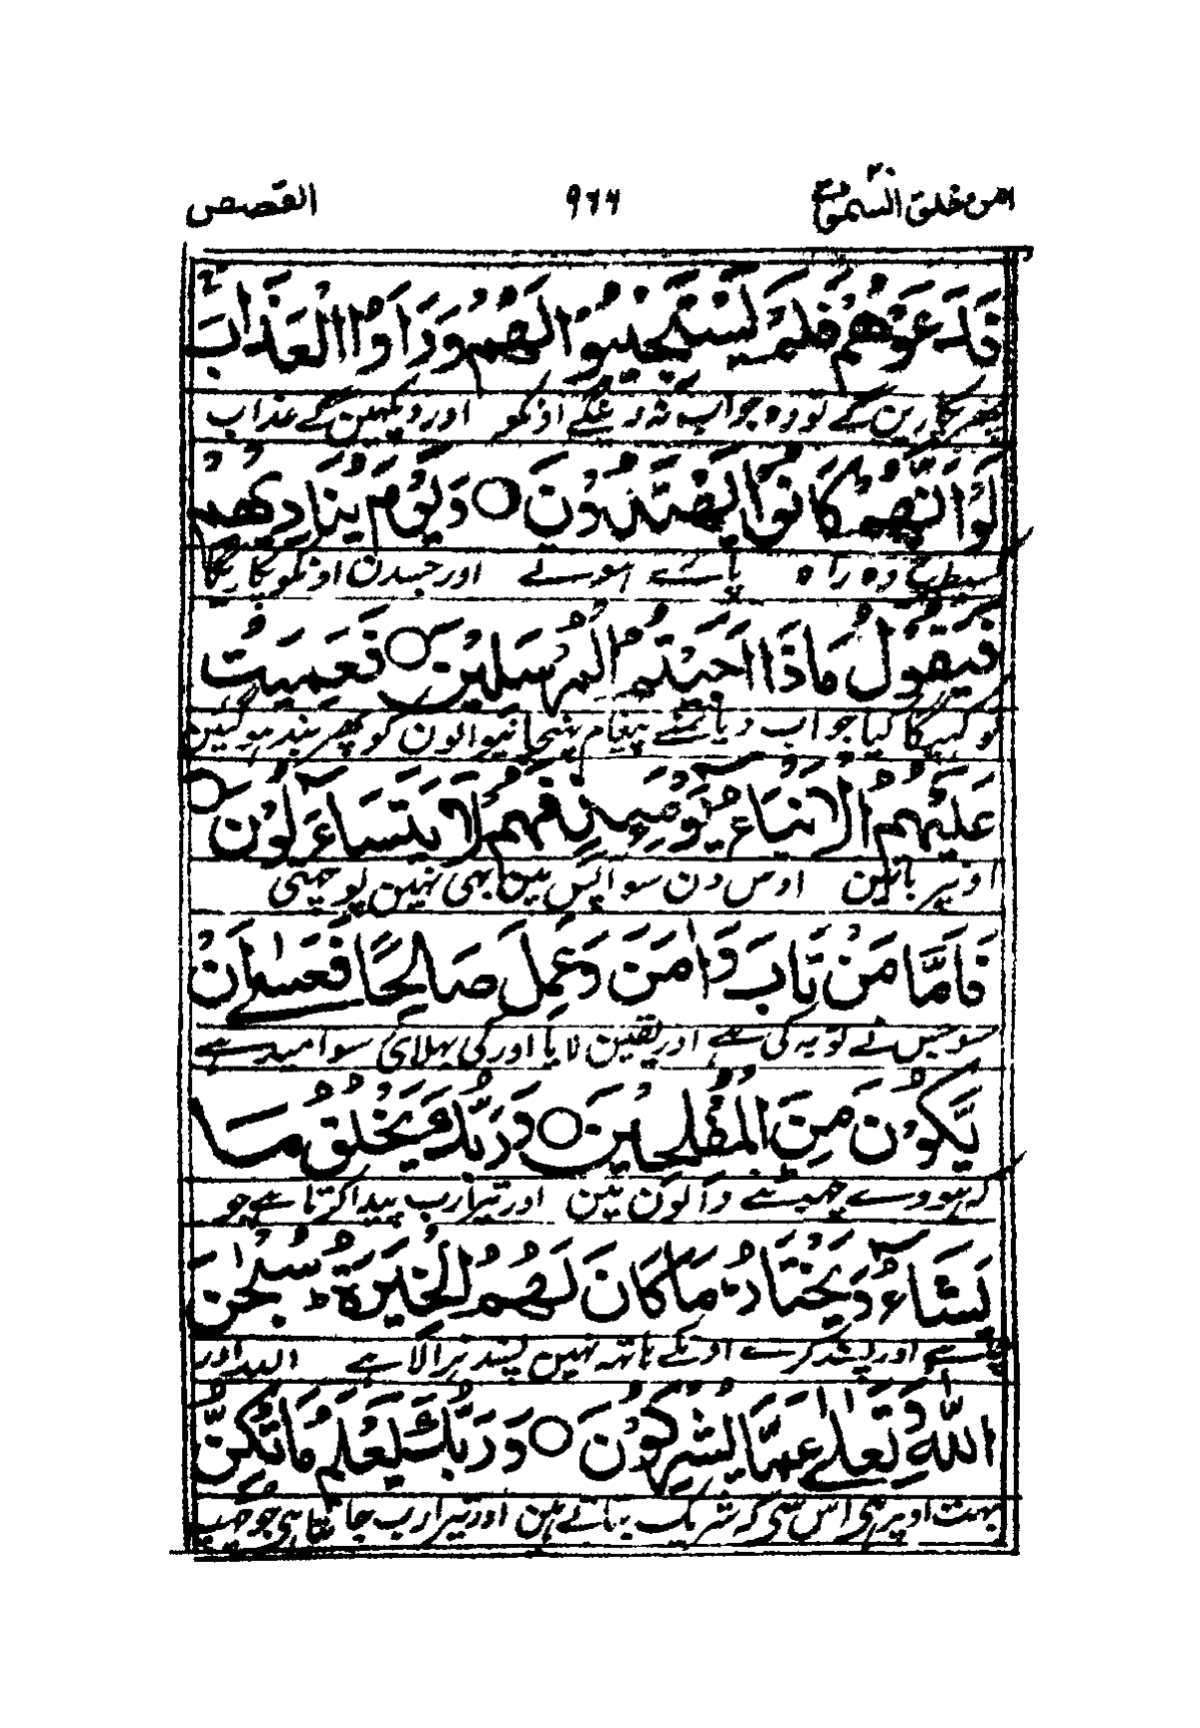 امن خلق السمٰوٰت ۲۰ ۹۶۶ القصص
فَدَعَوْهُمْ فَلَمْ يَسْتَجِيْبُوْا لَهُمْ وَرَاَوُا الْعَذَابَ
پھر پکارین گے تو وہ جواب نہ دینگے اونکو اور دیکھین گے عذاب
لَوْ اَنَّهُمْ كَانُوْا يَهْتَدُوْنَ ○ وَيَوْمَ يُنَادِيْهِمْ
کسیطرح وہ راہ پائے ہوتے اور جسدن اونکو پکاریگا
فَيَقُوْلُ مَاذَا اَجَبْتُمُ الْمُرْسَلِيْنَ ○ فَعَمِيَتْ
تو کہیگا کیا جواب دیا تمنے پیغام پہنچانیوالون کو پھر بند ہوگئین
عَلَيْهِمُ الْاَنْۢبَآءُ يَوْمَئِذٍ فَهُمْ لَا يَتَسَآءَلُوْنَ ○
اونپر باتین اوس دن سو آپس مین بھی نہین پوچھتی
فَاَمَّا مَنْ تَابَ وَاٰمَنَ وَعَمِلَ صَالِحًا فَعَسٰٓى اَنْ
سو جس نے توبہ کی ہے اور یقین لایا اور کی بھلائی سو امید ہے
يَّكُوْنَ مِنَ الْمُفْلِحِيْنَ ○ وَرَبُّكَ يَخْلُقُ مَا
کہ ہووے چھٹنے والون مین اور تیرا رب پیدا کرتا ہے جو
يَشَآءُ وَيَخْتَارُ ؕ مَا كَانَ لَهُمُ الْخِيَرَةُ ؕ سُبْحٰنَ
چاہے اور پسند کرے اونکے ہاتھ نہین پسند نرالا ہے اللہ اور
اللّٰهِ وَتَعٰلٰى عَمَّا يُشْرِكُوْنَ ○ وَرَبُّكَ يَعْلَمُ مَا تُكِنُّ
بہت اوپر ہی اس سی کہ شریک بتاتے ہین اور تیرا رب جانتا ہی جو چھپ